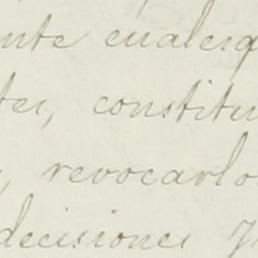 nte cualesq
tes, constitu
, revocarlo
decisiones y